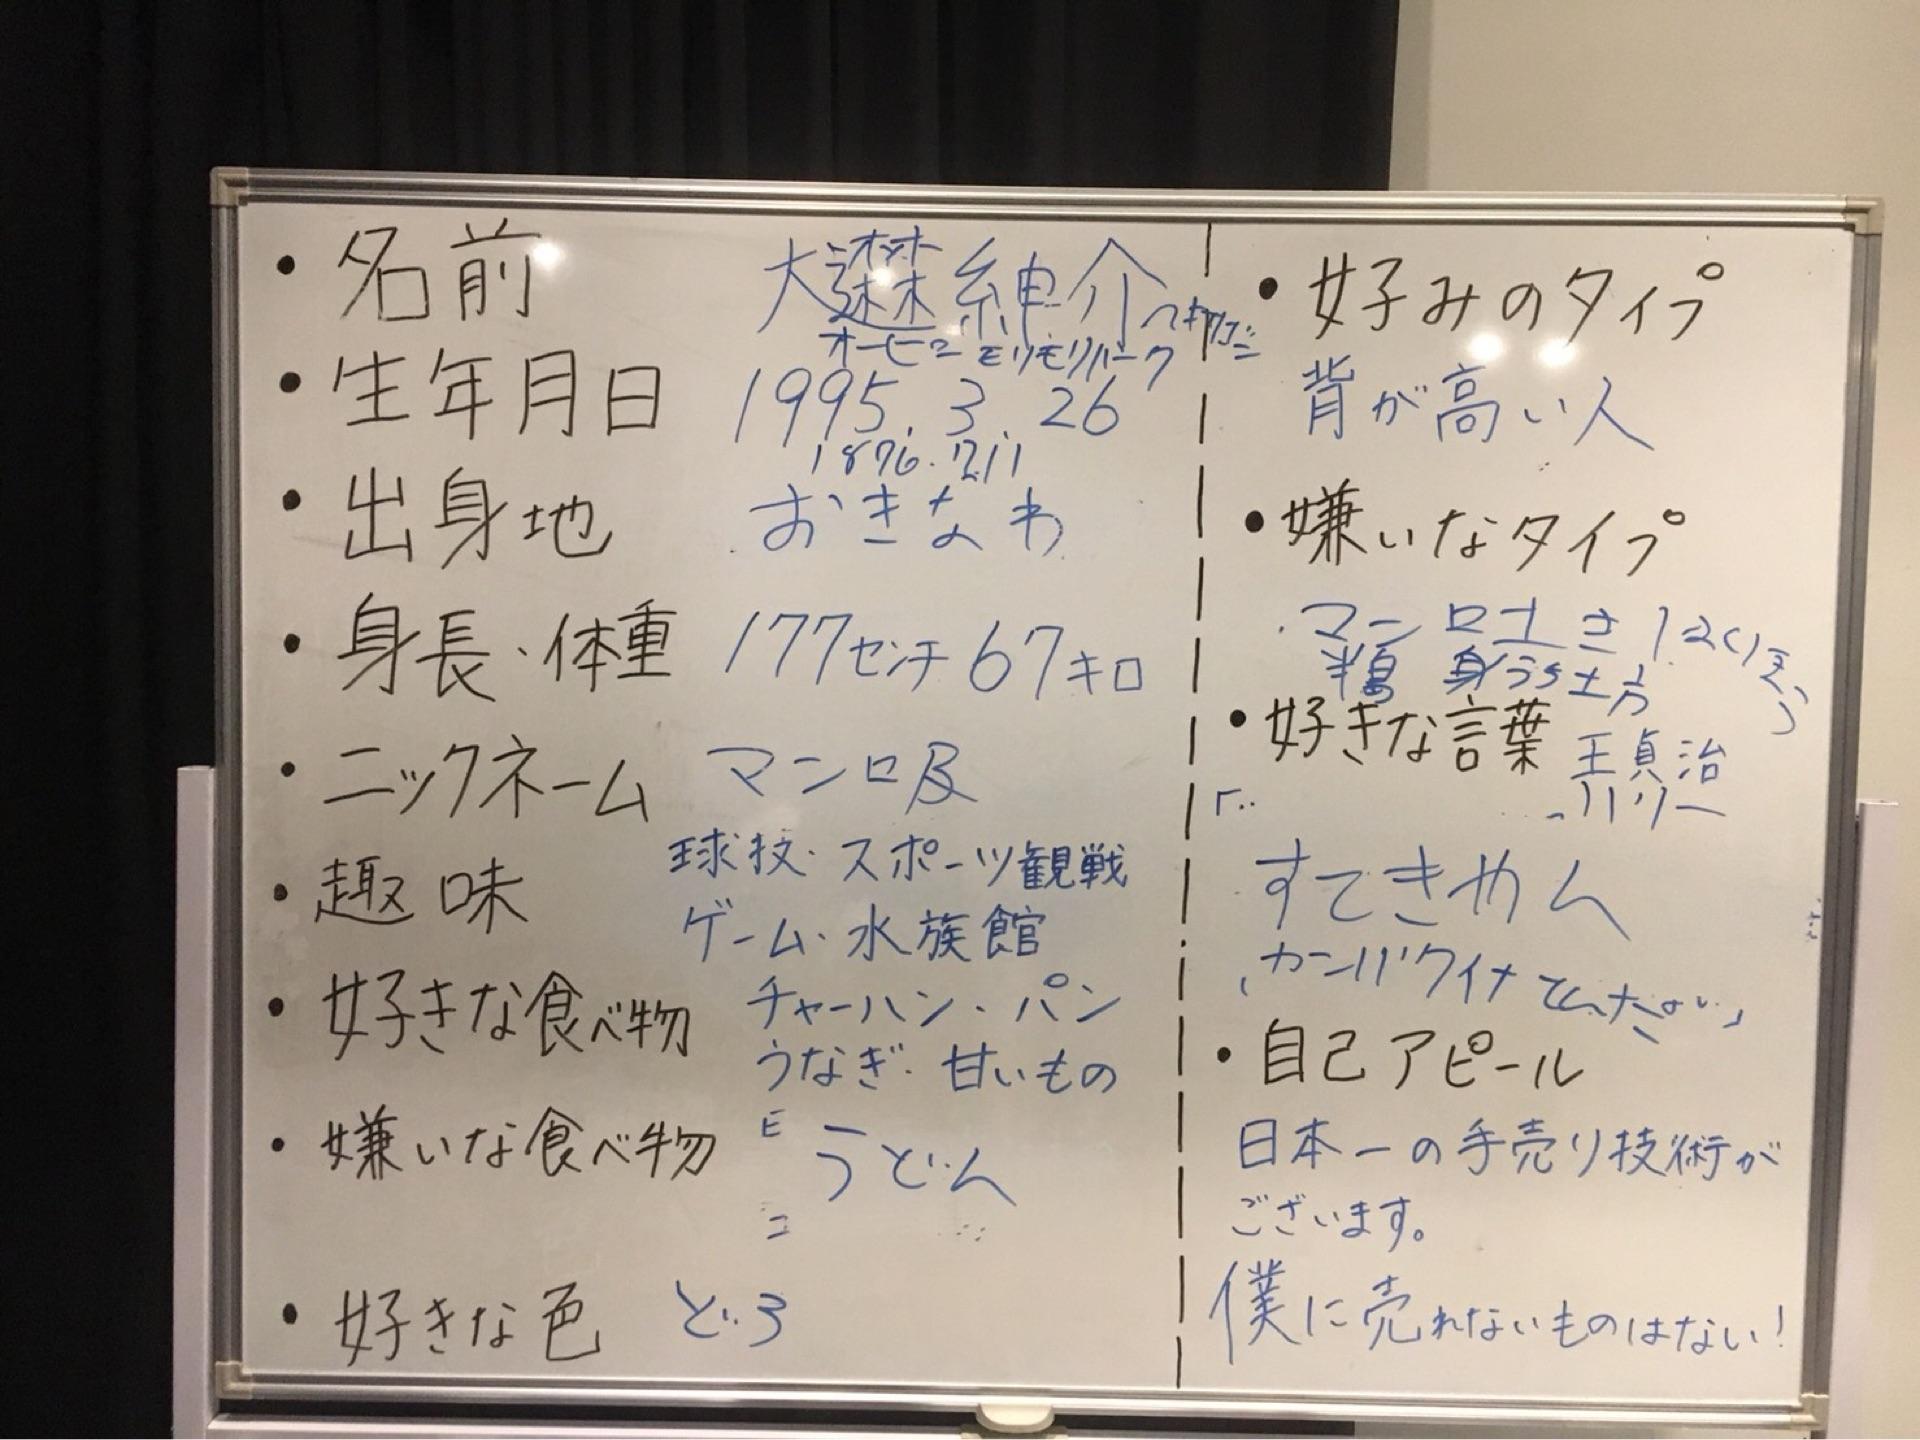 ・名前 大 紳介
・生年月日 1995.3.26
1876.7.11
・出身地 おきなわ
・身長・体重 177センチ 67キロ
・ニックネーム マンロ及
・趣味 球技・スポーツ観戦
ゲーム・水族館
・好きな食べ物 チャーハン・パン
うなぎ・甘いもの
・嫌いな食べ物 うどん
・好きな色 どろ
・好みのタイプ
背が高い人
・嫌いなタイプ
・好きな言葉 王貞治
すてきやん
・自己アピール
日本一の手売り技術が
ございます。
僕に売れないものはない!